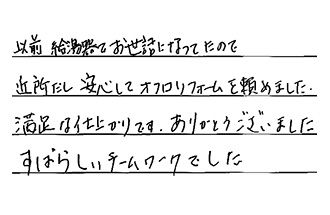 以前 給湯器でお世話になってたので
近所だし 安心して オフロリフォームを頼めました.
満足な仕上がりです. ありがとうございました
すばらしいチームワークでした